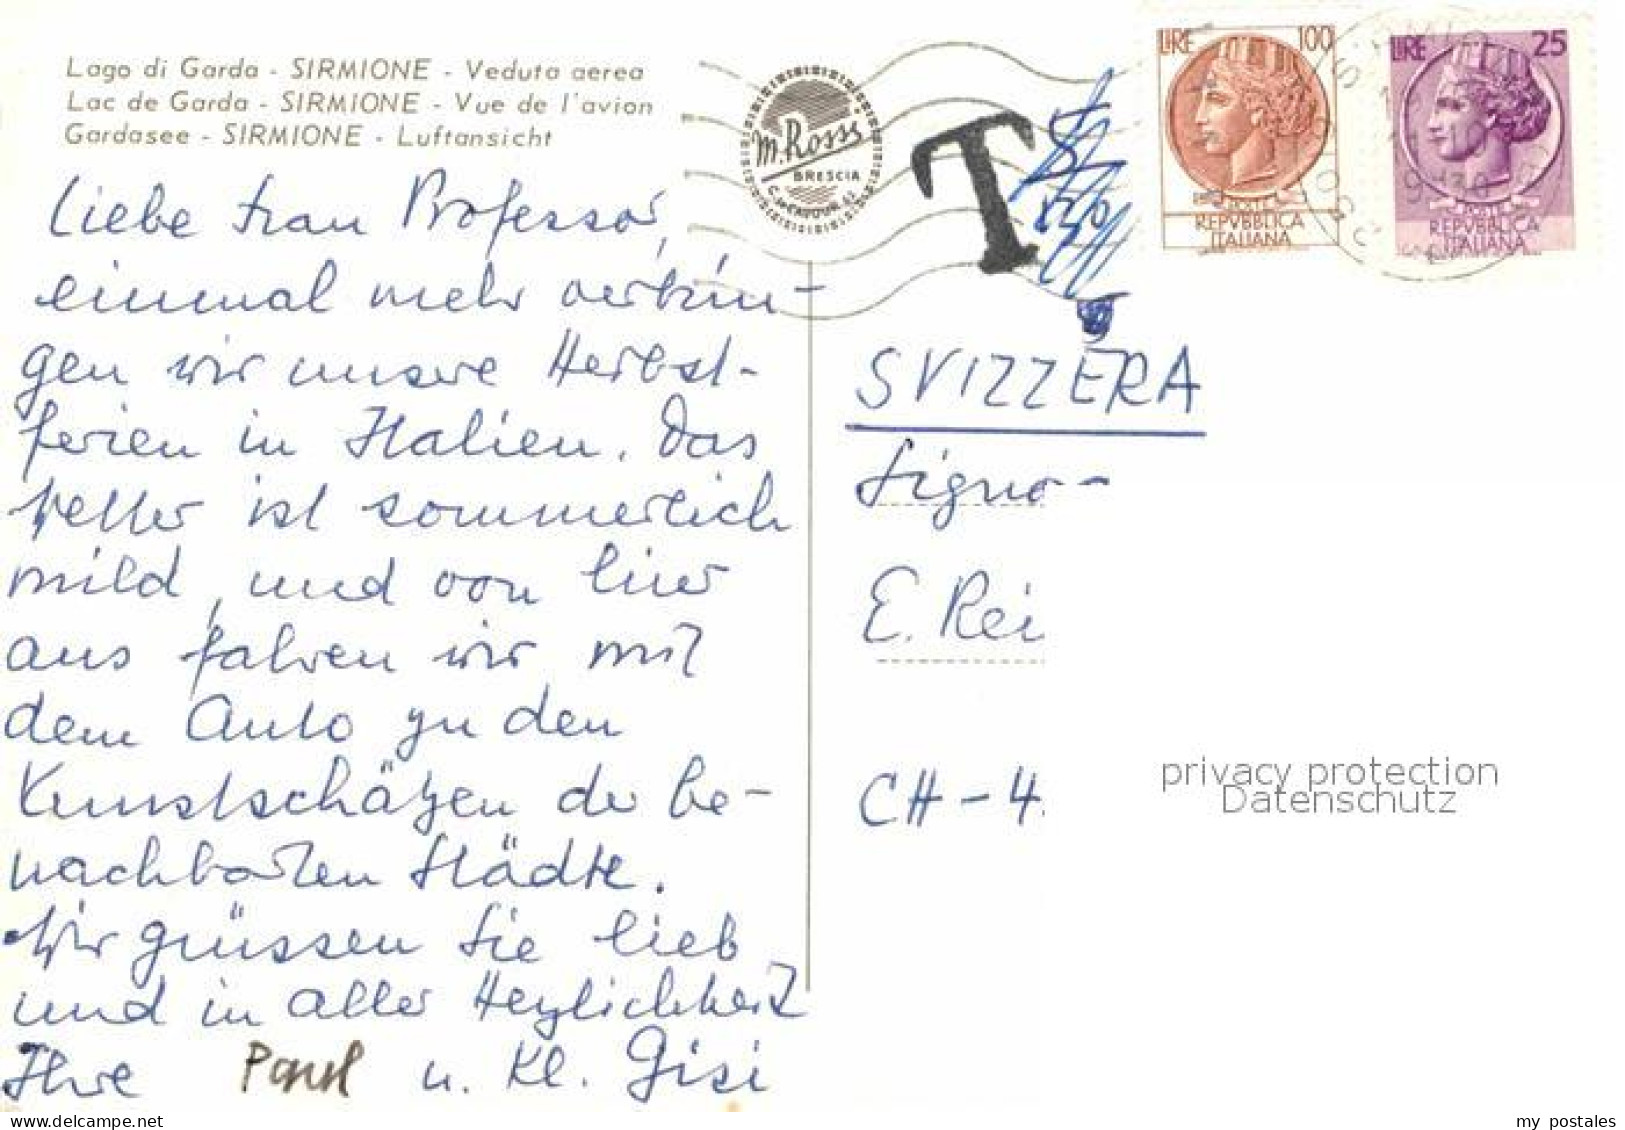 Lago di Garda - SIRMIONE - Veduta aerea
Lac de Garda - SIRMIONE - Vue de l'avion
Gardasee - SIRMIONE - Luftansicht
Liebe Frau Professor,
einmal mehr verbrin-
gen wir unsere Herbst-
ferien in Italien. Das
Wetter ist sommerlich
mild, und von hier
aus fahren wir mit
dem Auto zu den
Kunstschätzen der be-
nachbarten Städte.
Wir grüssen Sie lieb
und in aller Herzlichkeit
Ihre Paul u. Kl. Gisi
M. Ross
BRESCIA
T
LIRE 100
POSTE
REPVBBLICA
ITALIANA
LIRE 25
POSTE
REPVBBLICA
ITALIANA
SVIZZERA
Signo-
E. Rei
CH-4
privacy protection
Datenschutz
my postales
delcampe.net